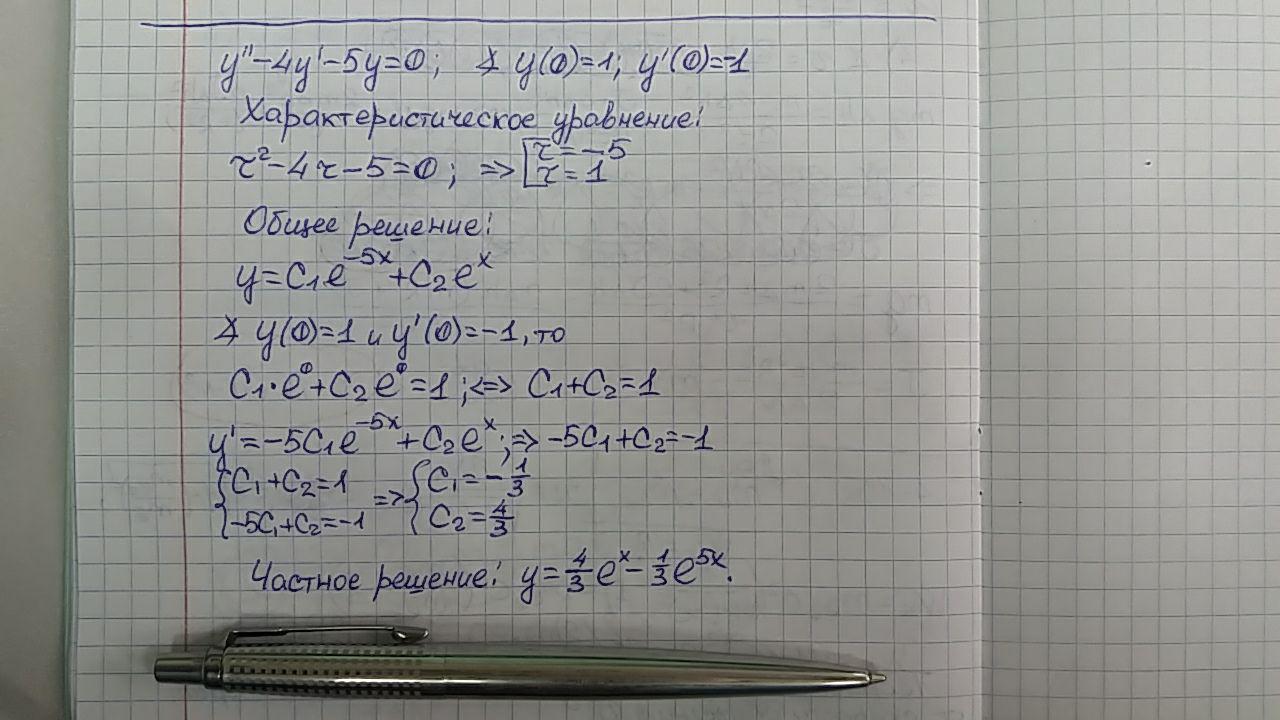 y'' - 4y' - 5y = 0; ∡ y(0) = 1; y'(0) = -1
Характеристическое уравнение:
τ² - 4τ - 5 = 0; => [τ = -5
τ = 1
Общее решение:
y = C₁e^(-5x) + C₂e^x
∡ y(0) = 1 и y'(0) = -1, то
C₁·e⁰ + C₂e⁰ = 1; <=> C₁ + C₂ = 1
y' = -5C₁e^(-5x) + C₂e^x; => -5C₁ + C₂ = -1
{C₁ + C₂ = 1 => {C₁ = -1/3
{-5C₁ + C₂ = -1 {C₂ = 4/3
Частное решение: y = 4/3 e^x - 1/3 e^(5x).